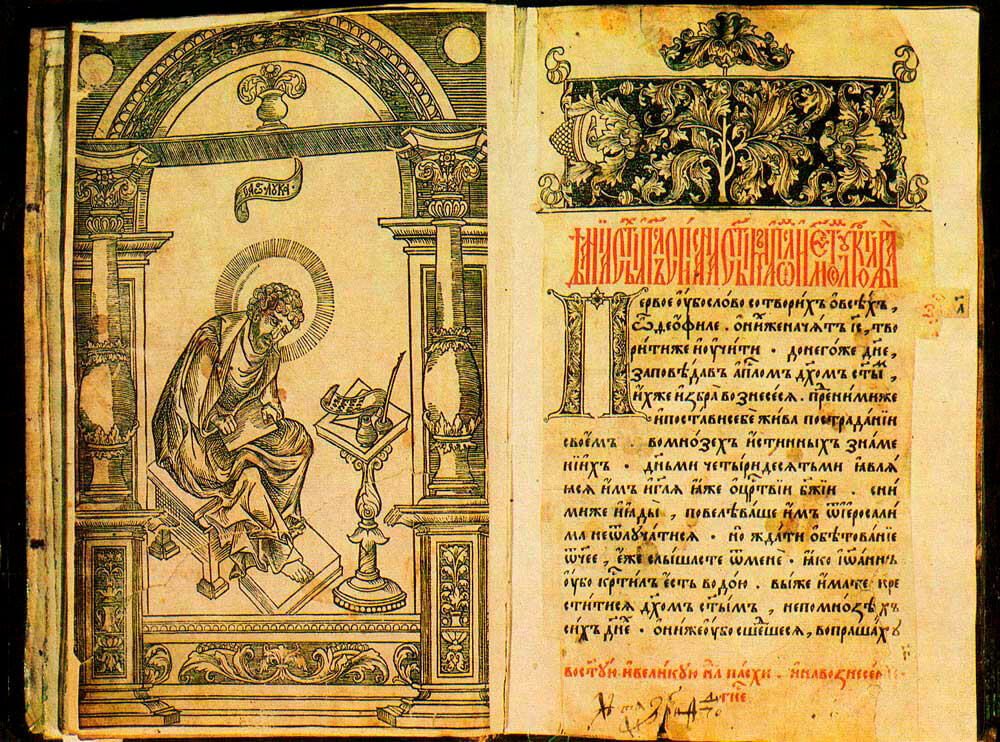 ѻаг҃ЛУКА
Первое ѹ҆бо сло́во сотвори́хъ ѡ҆ всѣ́хъ,
ѽ ѳео́филе. о҆ ни́хже нача́тъ і҆с҃, тво
ри́ти же и҆ ѹ҆чи́ти. до него́же дн҃е,
запо́вѣдавъ а҆п҃лом дх҃омъ ст҃ы,
и҆́хже и҆збра̀ вознесе́сѧ. пре́ни́мже
и҆ поста́ви себе́ жи́ва по страда́нїи
свое́мъ. во мно́зехъ и҆́стинныхъ зна́ме
нїихъ. дньми четы́ридесѧтьми ꙗ҆влѧ
ꙗсѧ и҆́мъ и҆ гл҃ѧ ꙗ҆́же о҆ црⷭ҇твїи бж҃їи. сни́
миже и҆ ꙗ҆ды̀, повелѣва́ше и҆́мъ ѿ і҆еросали́
ма не ѿлуча́тисѧ. но̀ жда́ти ѡ҆бѣтова́нїе
ѿч҃ее, е҆́же слы́шасте ѿ менѐ. ꙗ҆́ко і҆ѡа́ннъ
ѹ҆́бо крⷭ҇ти́лъ є҆́сть водо́ю. вы́же и҆́мате кре
сти́тисѧ дх҃омъ ст҃ы́мъ, не по мно́зѣхъ
си́хъ дн҃е. о҆ни́же ѹ҆́бо сше́дшесѧ, вопраша́хꙋ
въ ст҃ꙋ́ю и҆ вели́кꙋю нлⷣю па́схи. и҆ на вознесе́нїе
гнⷭ҇е